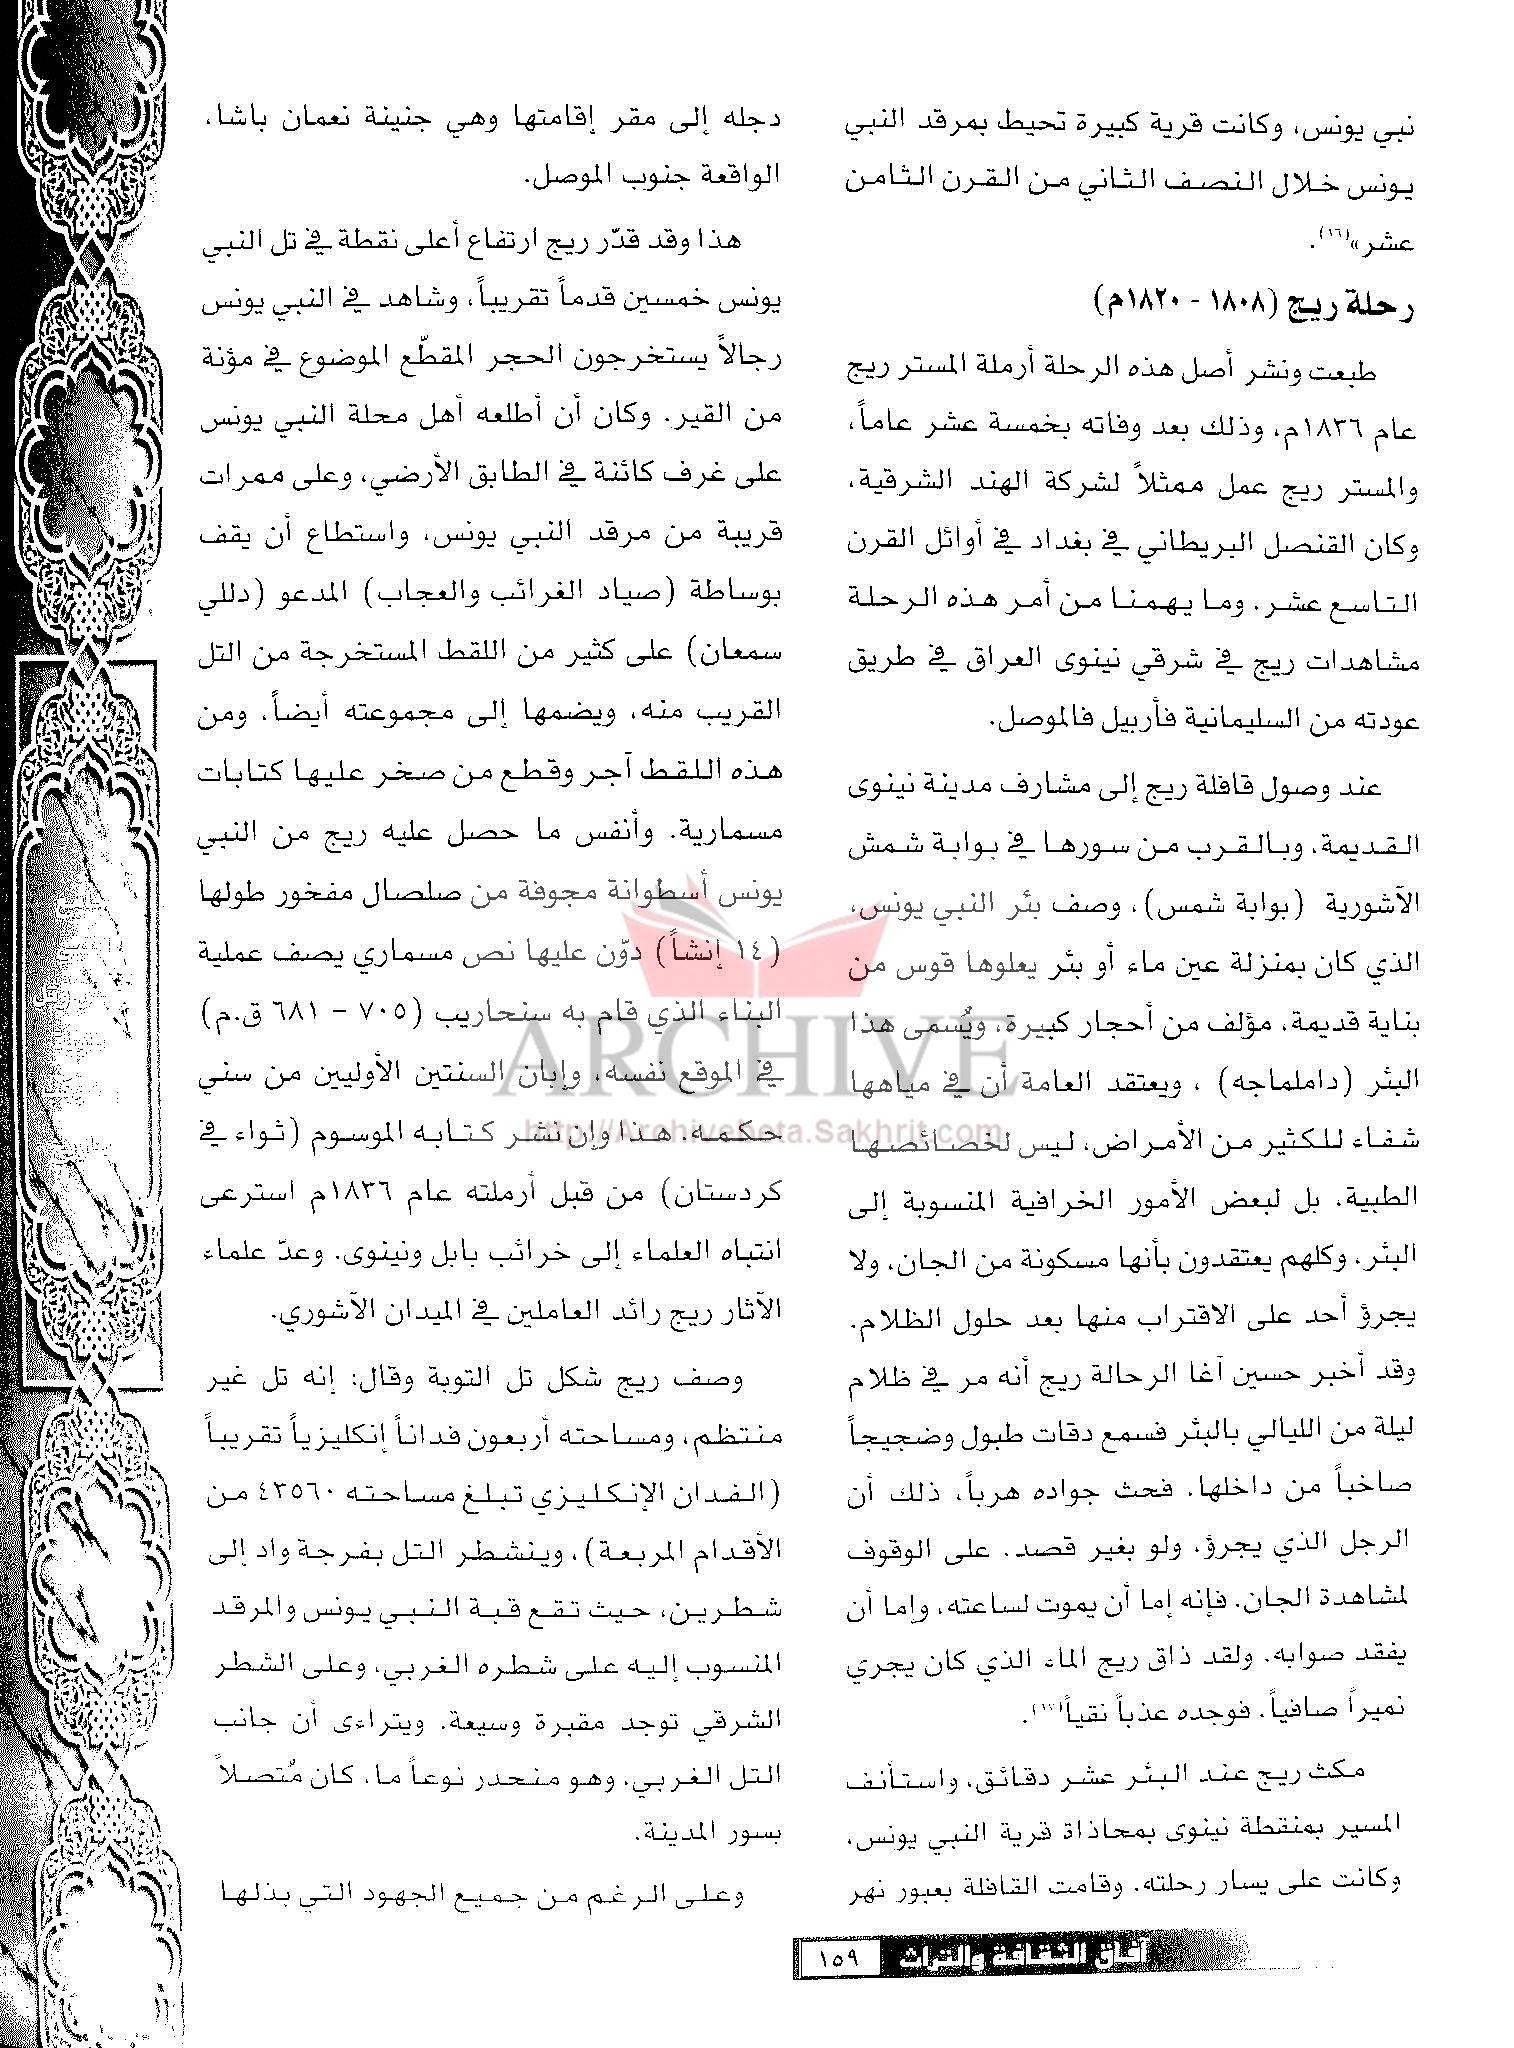 نبي يونس، وكانت قرية كبيرة تحيط بمرقد النبي
يونس خلال النصف الثاني من القرن الثامن
عشر»(١٦).
رحلة ريج (١٨٠٨ - ١٨٢٠م)
طبعت ونشر أصل هذه الرحلة أرملة المستر ريج
عام ١٨٣٦م، وذلك بعد وفاته بخمسة عشر عاماً،
والمستر ريج عمل ممثلاً لشركة الهند الشرقية،
وكان القنصل البريطاني في بغداد في أوائل القرن
التاسع عشر. وما يهمنا من أمر هذه الرحلة
مشاهدات ريج في شرقي نينوى العراق في طريق
عودته من السليمانية فأربيل فالموصل.
عند وصول قافلة ريج إلى مشارف مدينة نينوى
القديمة، وبالقرب من سورها في بوابة شمش
الآشورية (بوابة شمس)، وصف بئر النبي يونس،
الذي كان بمنزلة عين ماء أو بئر يعلوها قوس من
بناية قديمة، مؤلف من أحجار كبيرة، ويُسمى هذا
البئر (داملماجه) ، ويعتقد العامة أن في مياهها
شفاء للكثير من الأمراض، ليس لخصائصها
الطبية، بل لبعض الأمور الخرافية المنسوبة إلى
البئر، وكلهم يعتقدون بأنها مسكونة من الجان، ولا
يجرؤ أحد على الاقتراب منها بعد حلول الظلام.
وقد أخبر حسين آغا الرحالة ريج أنه مر في ظلام
ليلة من الليالي بالبئر فسمع دقات طبول وضجيجاً
صاخباً من داخلها. فحث جواده هرباً، ذلك أن
الرجل الذي يجرؤ، ولو بغير قصد. على الوقوف
لمشاهدة الجان. فإنه إما أن يموت لساعته، وإما أن
يفقد صوابه. ولقد ذاق ريج الماء الذي كان يجري
نميراً صافياً. فوجده عذباً نقياً.
مكث ريج عند البئر عشر دقائق، واستأنف
المسير بمنقطة نينوى بمحاذاة قرية النبي يونس،
وكانت على يسار رحلته. وقامت القافلة بعبور نهر
دجله إلى مقر إقامتها وهي جنينة نعمان باشا،
الواقعة جنوب الموصل.
هذا وقد قدّر ريج ارتفاع أعلى نقطة في تل النبي
يونس خمسين قدماً تقريباً، وشاهد في النبي يونس
رجالاً يستخرجون الحجر المقطّع الموضوع في مؤنة
من القير. وكان أن أطلعه أهل محلة النبي يونس
على غرف كائنة في الطابق الأرضي، وعلى ممرات
قريبة من مرقد النبي يونس، واستطاع أن يقف
بوساطة (صياد الغرائب والعجاب) المدعو (دللي
سمعان) على كثير من اللقط المستخرجة من التل
القريب منه، ويضمها إلى مجموعته أيضاً، ومن
هذه اللقط آجر وقطع من صخر عليها كتابات
مسمارية. وأنفس ما حصل عليه ريج من النبي
يونس أسطوانة مجوفة من صلصال مفخور طولها
(١٤ إنشاً) دوّن عليها نص مسماري يصف عملية
البناء الذي قام به سنحاريب (٧٠٥ – ٦٨١ ق.م)
في الموقع نفسه، وإبان السنتين الأوليين من سني
حكمه. هذا وإن نشر كتابه الموسوم (ثواء في
كردستان) من قبل أرملته عام ١٨٣٦م استرعى
انتباه العلماء إلى خرائب بابل ونينوى. وعدّ علماء
الآثار ريج رائد العاملين في الميدان الآشوري.
وصف ريج شكل تل التوبة وقال: إنه تل غير
منتظم، ومساحته أربعون فداناً إنكليزياً تقريباً
(الفدان الإنكليزي تبلغ مساحته ٤٣٥٦٠ من
الأقدام المربعة)، وينشطر التل بفرجة واد إلى
شطرين، حيث تقع قبة النبي يونس والمرقد
المنسوب إليه على شطره الغربي، وعلى الشطر
الشرقي توجد مقبرة وسيعة. ويتراءى أن جانب
التل الغربي، وهو منحدر نوعاً ما، كان مُتصلاً
بسور المدينة.
وعلى الرغم من جميع الجهود التي بذلها
آفاق الثقافة والتراث ١٥٩
ARCHIVE
http://ArchiveBeta.Sakhrit.com